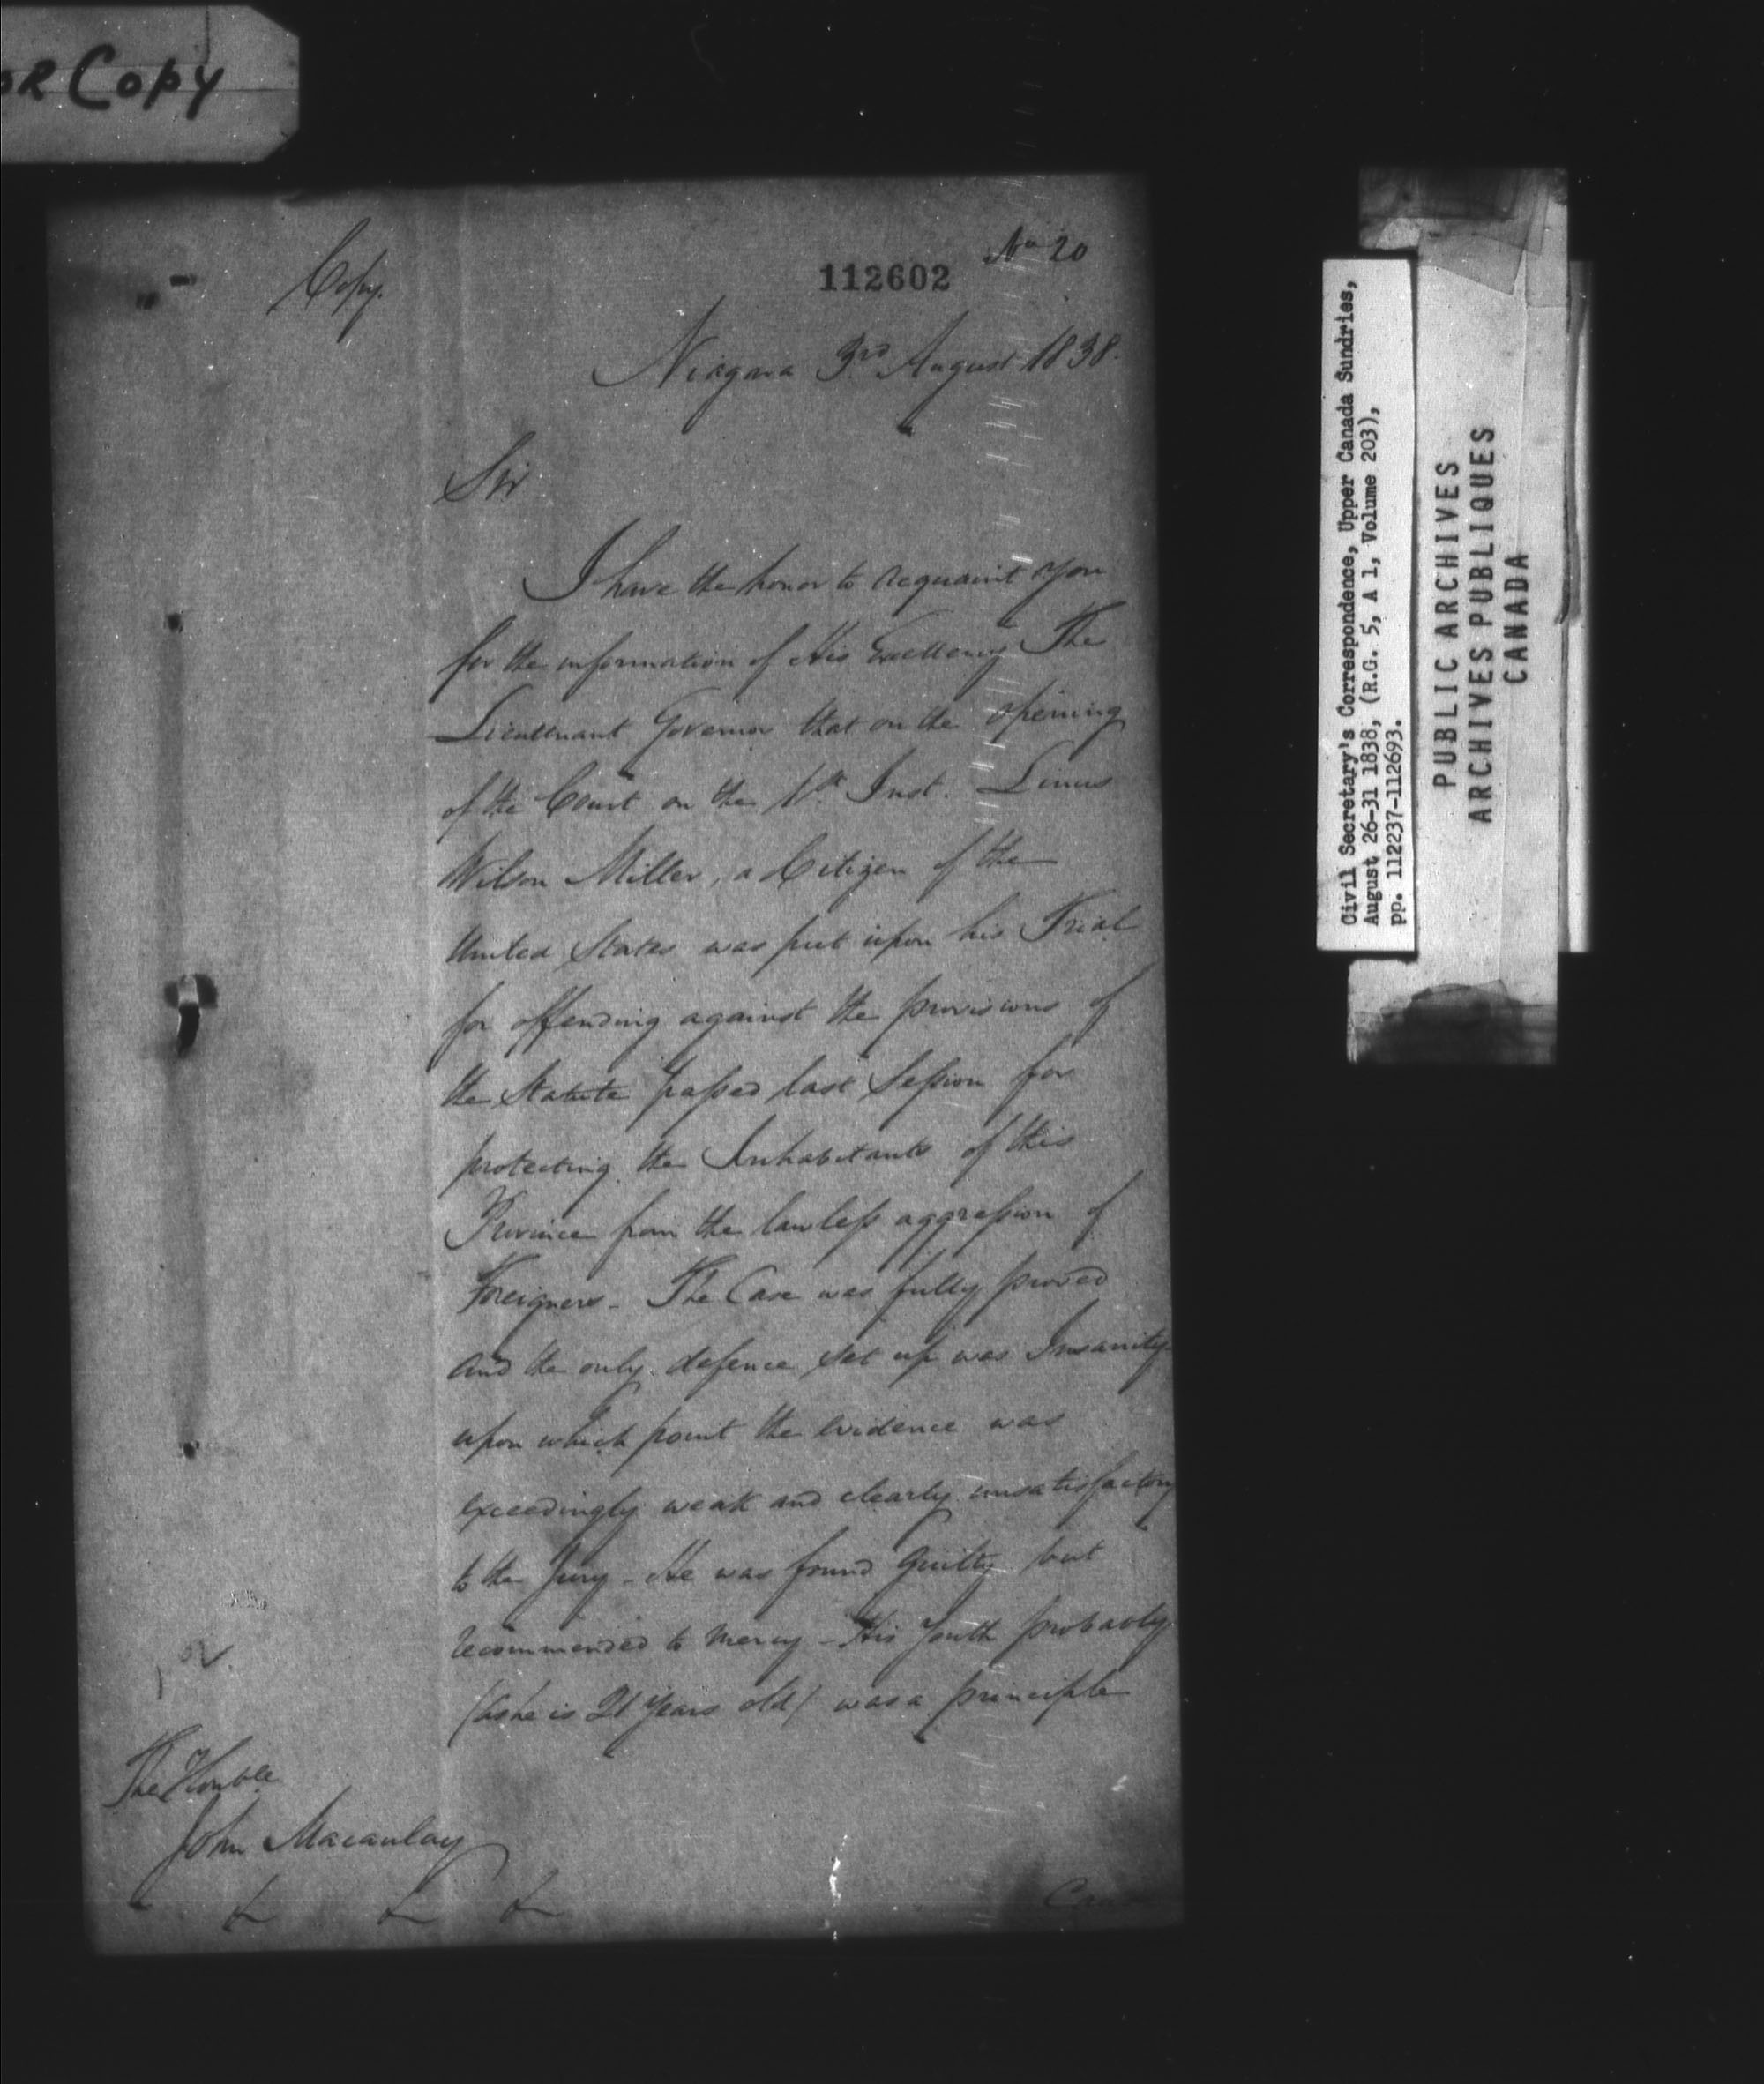 OR Copy
Copy.
112602
No 20
Niagara 3rd August 1838.
Sir
I have the honor to acquaint you
for the information of His Excellency The
Lieutenant Governor that on the opening
of the Court on the 1st Inst. Linus
Wilson Miller, a Citizen of the
United States was put upon his Trial
for offending against the provisions of
the Statute passed last Session for
protecting the Inhabitants of this
Province from the lawless aggression of
Foreigners - The Case was fully proved
and the only defence set up was Insanity
upon which point the evidence was
exceedingly weak and clearly unsatisfactory
to the Jury - He was found Guilty but
recommended to mercy - His Youth probably
(as he is 21 Years old) was a principle
The Honble
John Macaulay
&c &c &c
Civil Secretary's Correspondence, Upper Canada Sundries,
August 26-31 1838, (R.G. 5, A 1, Volume 203),
pp. 112237-112693.
PUBLIC ARCHIVES
ARCHIVES PUBLIQUES
CANADA